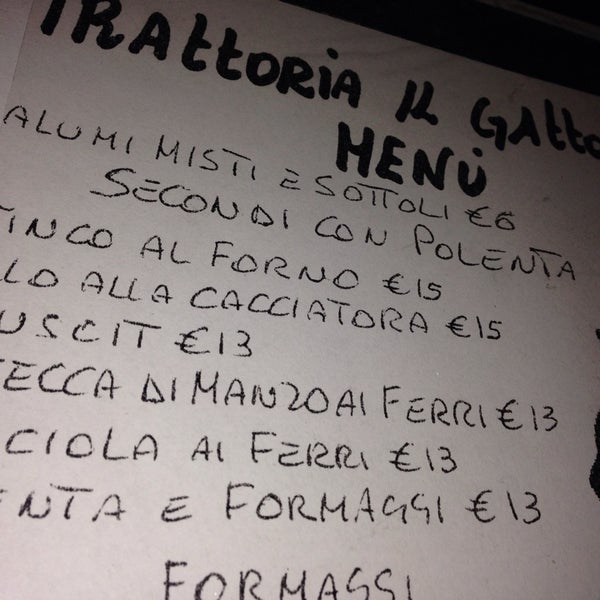 TRATTORIA IL GATTO
MENÙ
ALUMI MISTI E SOTTOLI €6
SECONDI CON POLENTA
TINCO AL FORNO €15
LLO ALLA CACCIATORA €15
USCIT €13
TECCA DI MANZO AI FERRI €13
CIOLA AI FERRI €13
ENTA E FORMAGGI €13
FORMAGGI